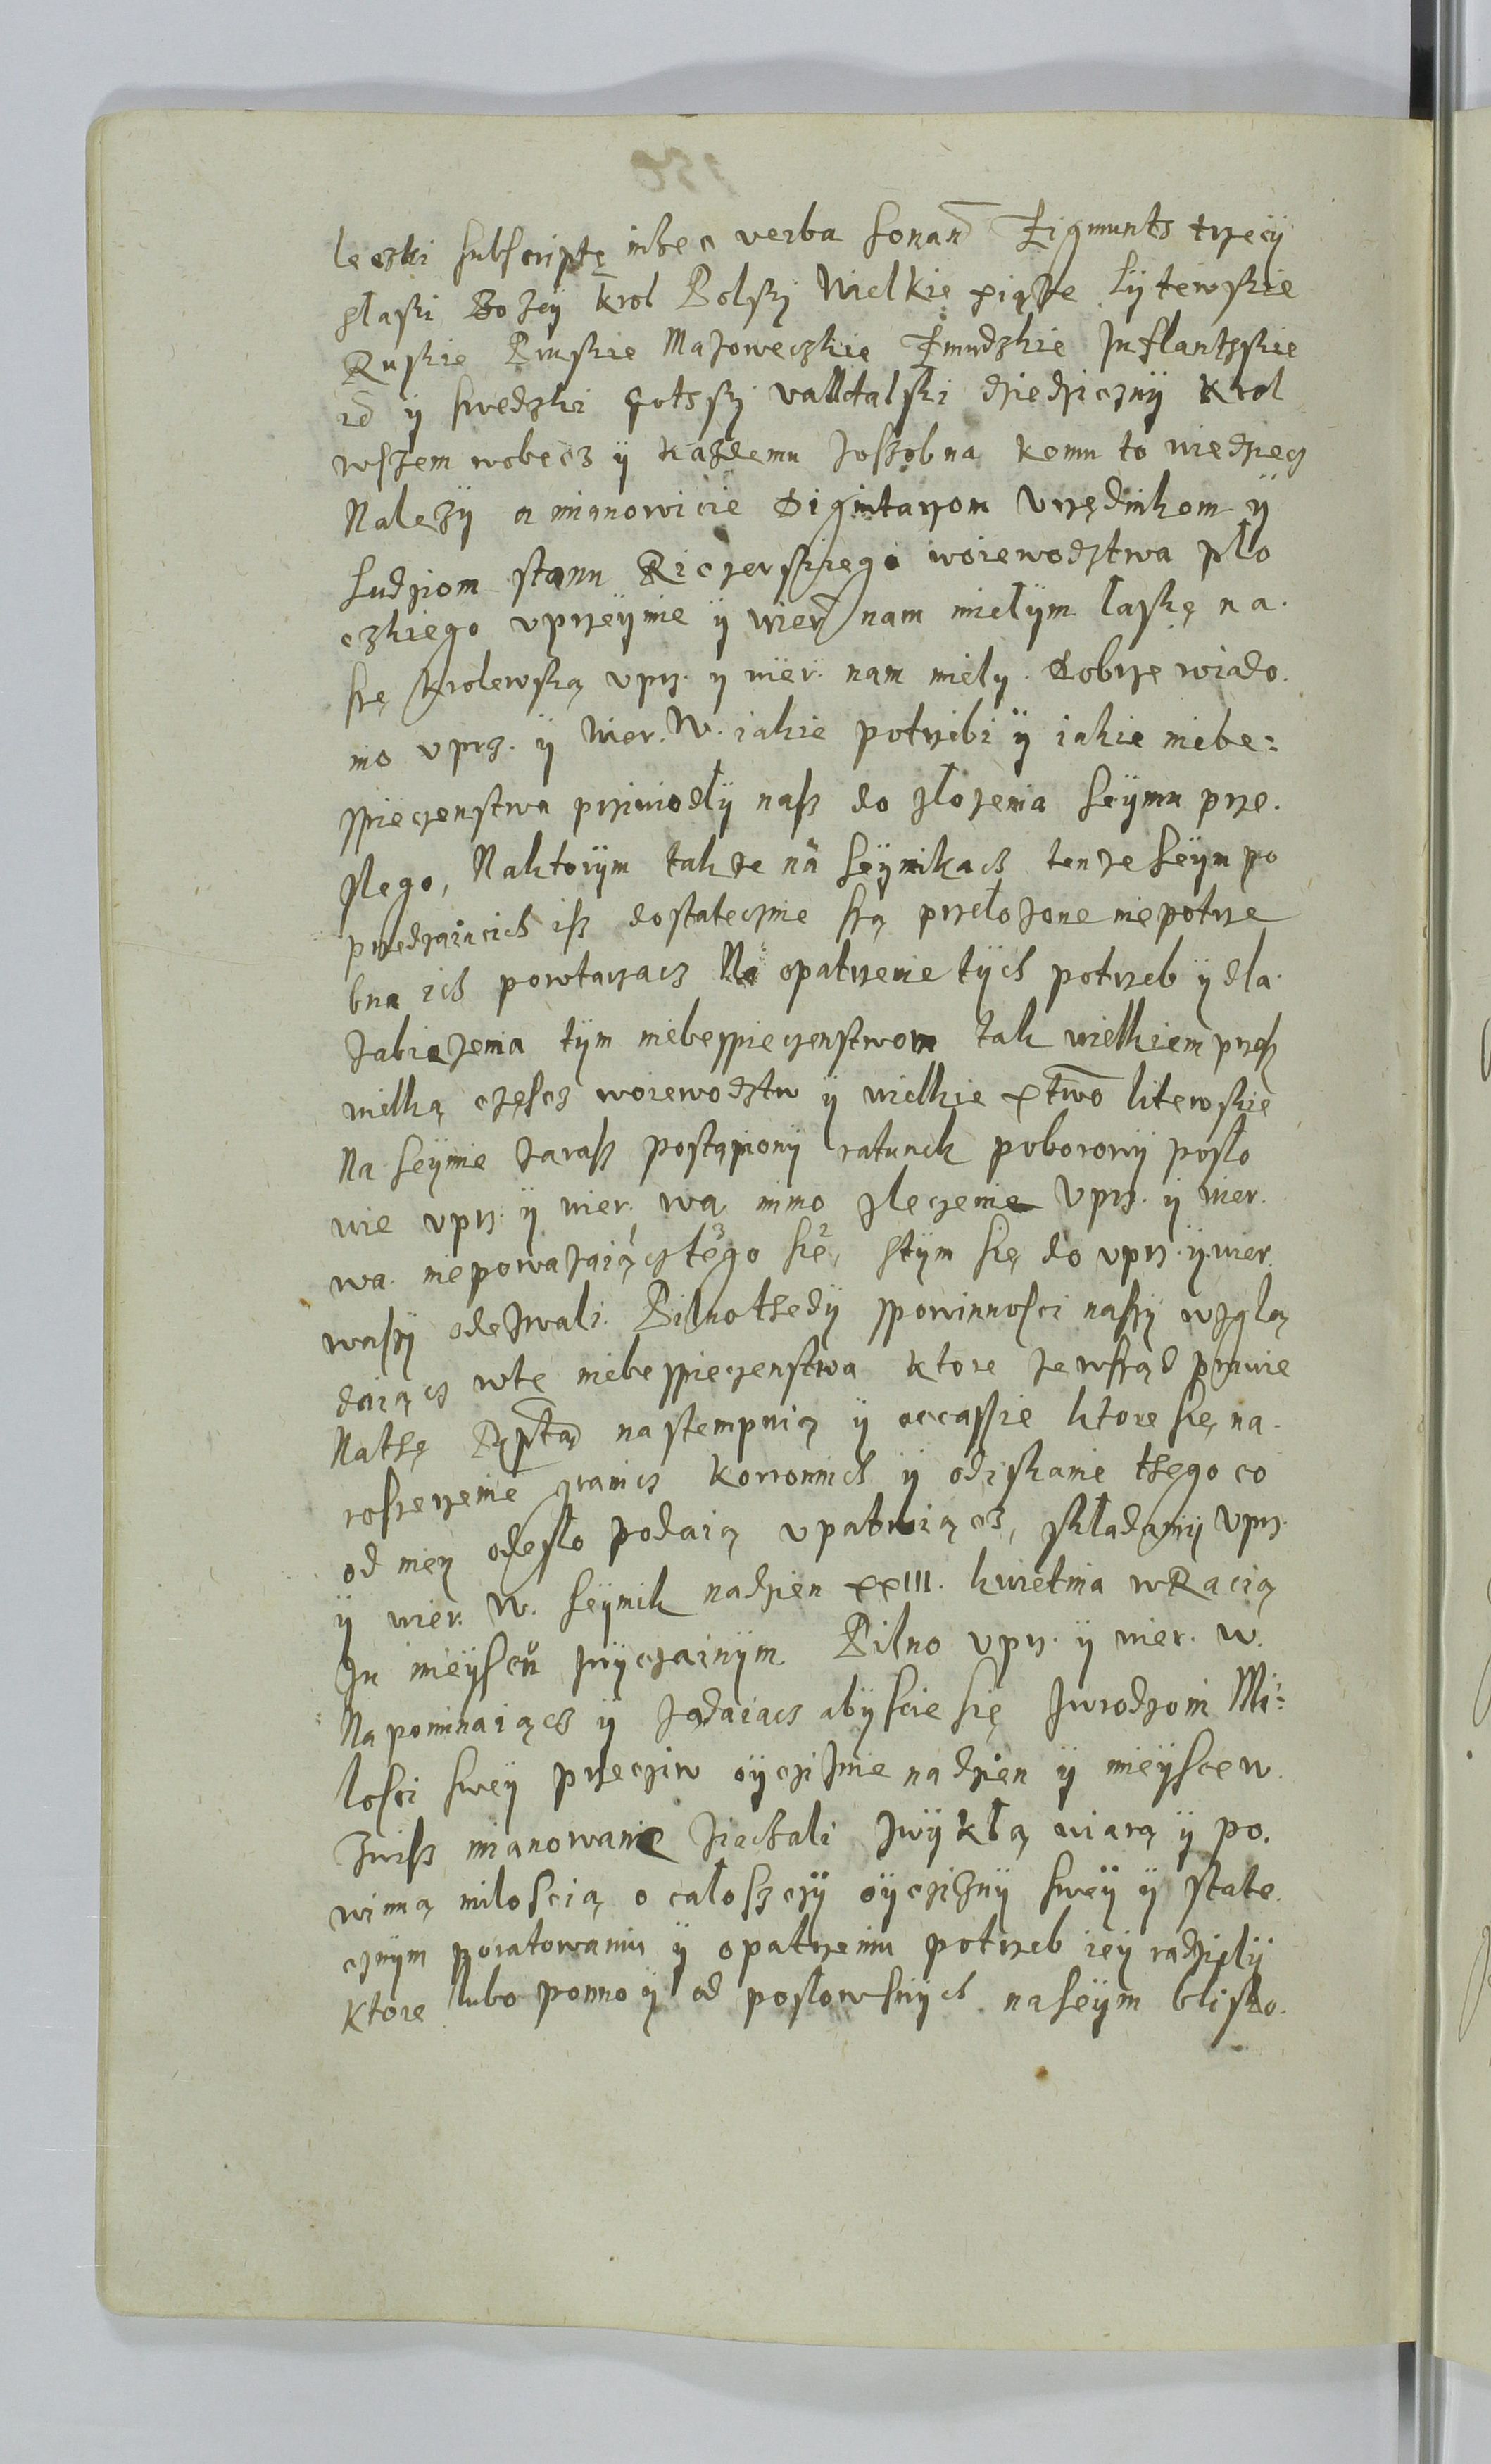 leczki subscriptę inhec verba sonan Zigmunth trzeczÿ
złaski Bozey krol Polski Wielkie xiąze Lÿtewskie
Ruskie Pruskie Mazoweczkie Zmudzkie Jnflantskie
id ÿ swedzki Gotski vandalski dziedzicznÿ krol
wszem wobecz ÿ kazdemu zossobna komu to wiedziecz
Nalezÿ a mianowicie Dignitarzom Vrzędnikom ÿ
Ludziom stanu Riczerskiego woiewodztwa plo
czkiego vprzeÿmie ÿ wier nam miełÿm łaskę na.
szę krolewską vprz. y wier. nam miely. Dobrze wiado.
mo vprz. ÿ Wier. W. iakie potrzebi ÿ iakie niebe=
spieczenstwa prziwiodłÿ nasz do złozenia seÿmu prze.
slego, Naktorÿm takze na seÿmikach tenze seÿm po
przedzaiacich isz dostatecznie są przełozone niepotrze
bna ich powtarzacz Na opatrzenie tÿch potrzeb ÿ dla.
zabiezenia tÿm niebespieczenstwom tak wielkiem przesz
wielką częscz woiewodztw ÿ wielkie xtwo litewskie
Na seÿmie zarasz postąpionÿ ratunek poborowÿ posło
wie vprz. ÿ wier. wa. mimo zleczenie Vprz. ÿ wier.
wa. niepowazaiącz tego się, stÿm się do vprz. ÿ wier.
waszÿ odezwali. Pilno thedÿ spowinnosci naszÿ wzglą
daiącz wte niebespieczenstwa ktore zewsząd prawie
Nathę Rzptą nastempuią ÿ occassie ktore się na.
rosszerzenie granicz korronnich ÿ odziskanie thego co
od nieÿ odeszło podaią vpatruiącz, składamÿ vprz.
ÿ wier. W. seÿmik nadzien xxiii. kwietnia wRacią
zu mieÿscu zwÿczainÿm Pilno vprz. ÿ wier. w.
Napominaiącz ÿ ządaiacz abÿscie się zwrodzoni Mi=
losci sweÿ przecziw oÿczÿznie nadzien ÿ mieÿsce w.
zwisz mianowanie ziachali zwÿkłą wiarą ÿ po.
winną milosczią o całosczÿ oÿcziznÿ sweÿ ÿ state.
cznÿm poratowaniu ÿ opatrzeniu potrzeb ieÿ radzilÿ
ktore lubo pomno ÿ od posłowswÿch naseÿm blisko.